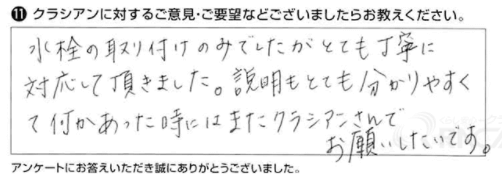 ⓫ クラシアンに対するご意見・ご要望などございましたらお教えください。
水栓の取り付けのみでしたがとても丁寧に
対応して頂きました。説明もとても分かりやすく
て何かあった時にはまたクラシアンさんで
お願いしたいです。
アンケートにお答えいただき誠にありがとうございました。